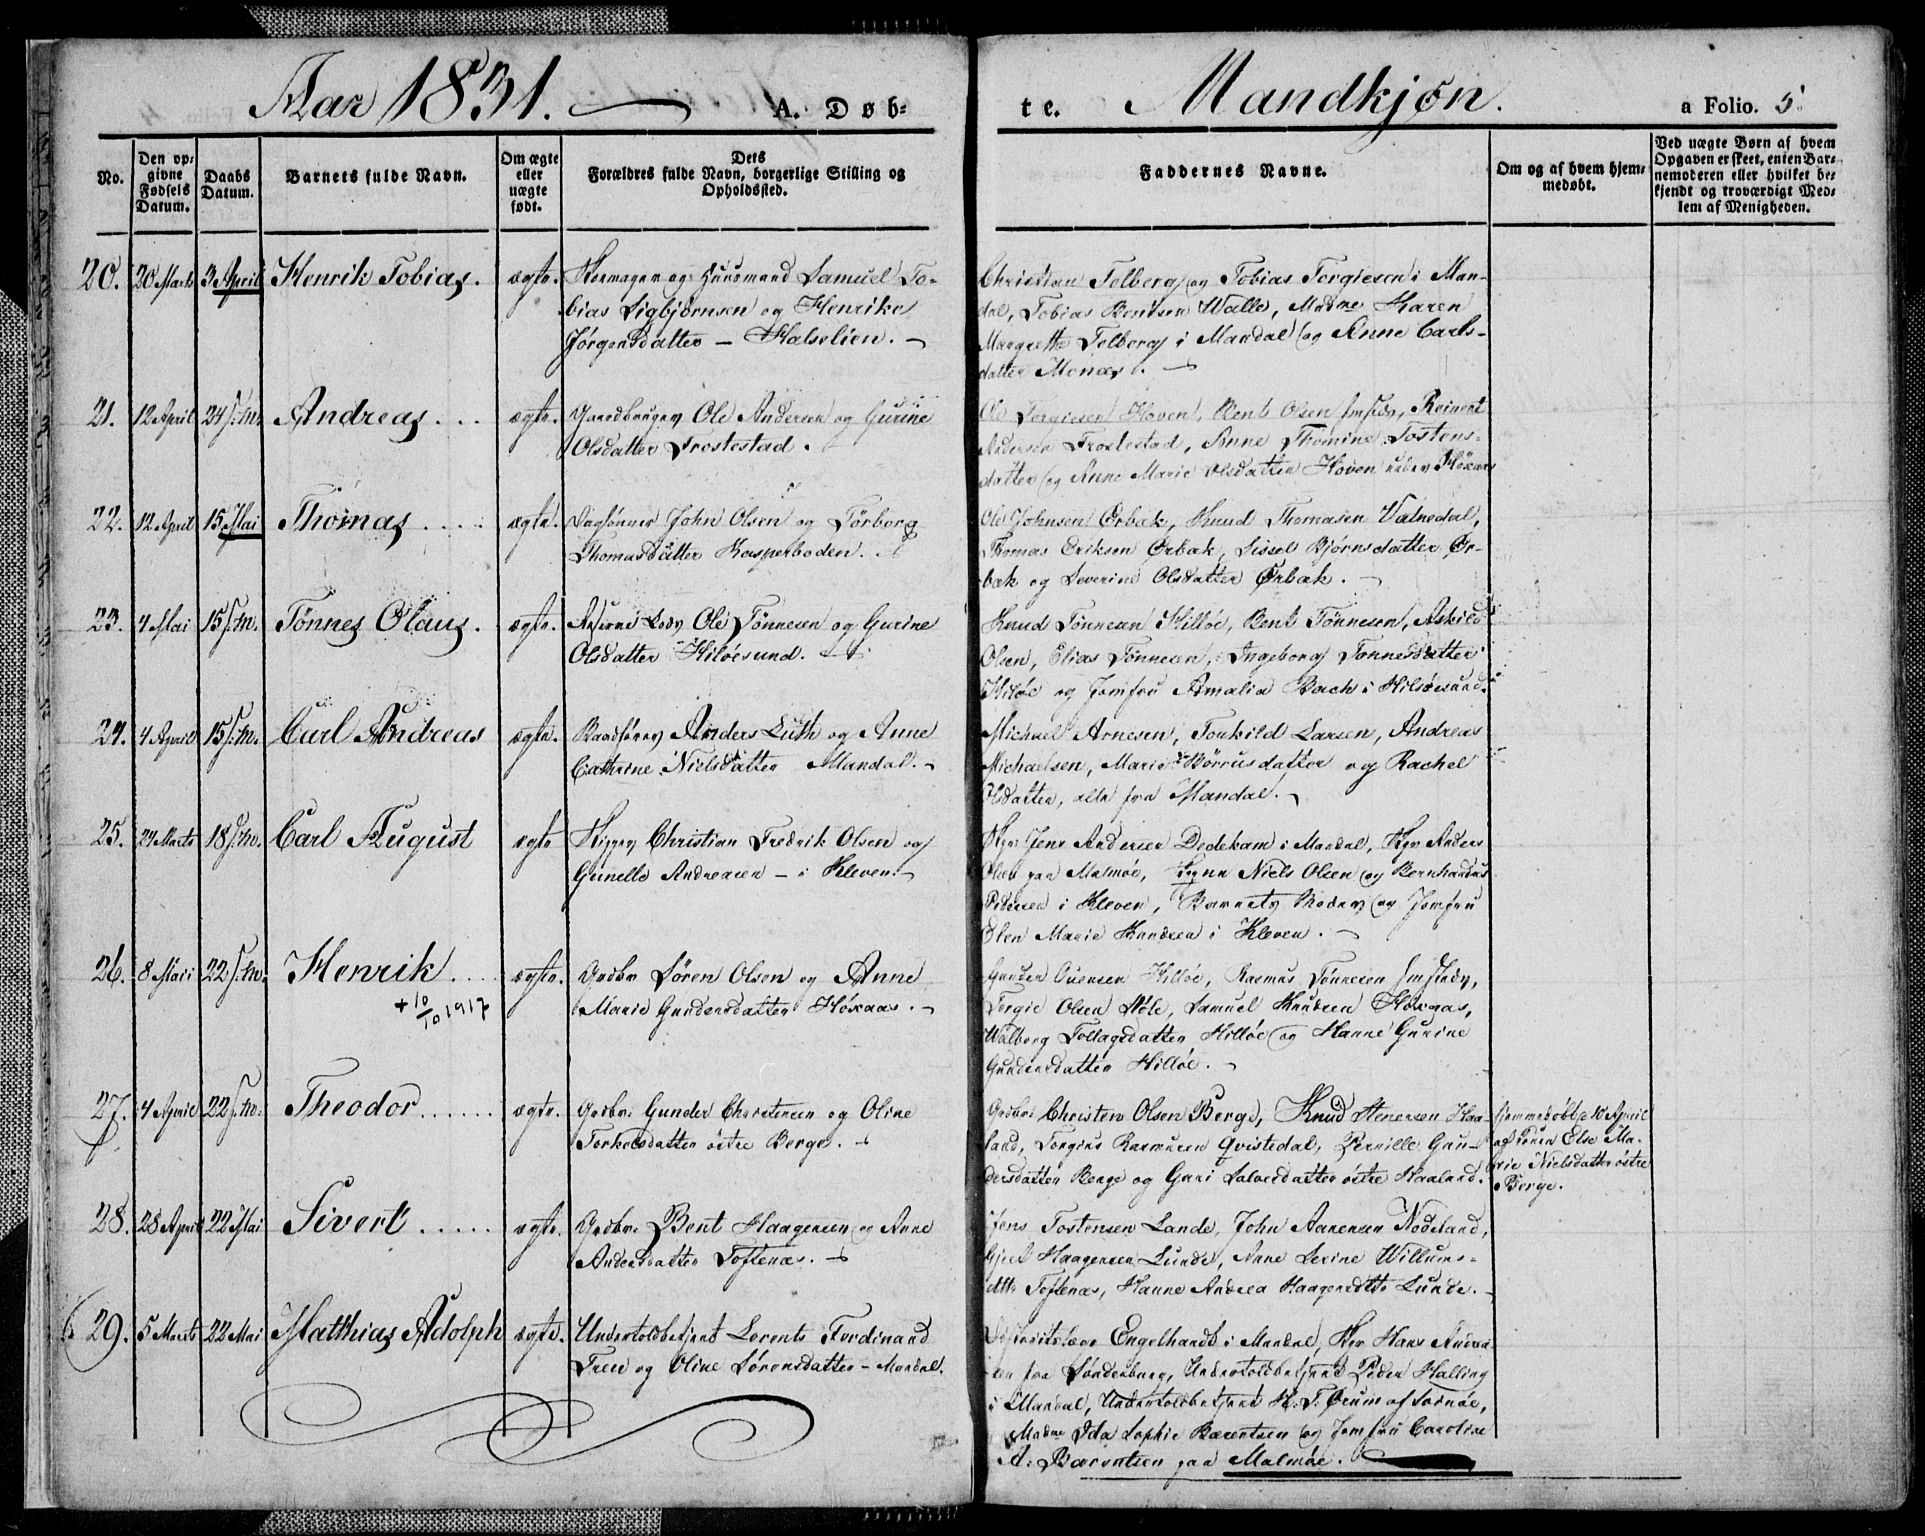 Aar 1831. A. Døb-
te. Mandkjøn. a Folio. 5.
No.
Den op-
givne
Fødsels
Datum.
Daabs
Datum.
Barnets fulde Navn.
Om ægte
eller
uægte
født.
Dets
Forældres fulde Navn, borgerlige Stilling og
Opholdssted.
Faddernes Navne.
Om og af hvem hjem-
medøbt.
Ved uægte Børn af hvem
Opgaven er skeet, enten Bar-
nemoderen eller hvilket be-
kjendt og troværdigt Med-
lem af Menigheden.
20. 20 Marts 3 April Henrik Tobias. ægte. Skomager og Huusmand Samuel To-
bias Sigbjørnsen og Henrike
Jørgensdatter - Halselien.
Christian Telberg og Tobias Torgiesen i Man-
dal, Tobias Bentsen Walle, Madme Karen
Margrethe Telberg i Mandal og Anne Carls-
datter Monæs.
21. 12 April 24 S:M. Andreas ægte. Gaardbruger Ole Andersen og Gurine
Olsdatter Frostestad.
Ole Torgiesen Hoven, Bent Olsen , Reinert
Andersen Frostestad, Anne Thomine Tostens-
datter og Anne Marie Olsdatter Hoven
22. 12 April 15 Mai Thomas ægte. John Olsen og Torborg
Thomasdatter Kasperboden.
Ole Johnsen Ørbak, Knud Thomasen Vatnedal,
Thomas Eriksen Ørbak, Sissel Bjørnsdatter Ør-
bak og Severine Olsdatter Ørbak.
23. 4 Mai 15 S:M. Tønnes Olaus. ægte. Lods Ole Tønnesen og Gurine
Olsdatter Hiløesund.
Knud Tønnesen Hilløe, Bent Tønnesen, Askild
Olsen, Elias Tønnesen, Ingeborg Tønnesdatter
Hiløe og Jomfru Amalia Bach i Hiløesund.
24. 4 April 15 S:M. Carl Andreas ægte. Baadfører Anders Luth og Anne
Cathrine Nielsdatter Mandal.
Michael Arnesen, Torkild Larsen, Andreas
Michaelsen, Marie Børrusdatter og Rachel
Olsdatter, alle fra Mandal.
25. 27 Marts 18 S:M. Carl August ægte Skipper Christian Fredrik Olsen og
Gunelle Andreasen - i Kleven.
Skpr Jens Andersen Dedekam i Mandal, Skpr Anders
Olsen paa Malmøe, Niels Olsen og Bernhardus
Pedersen i Kleven, Barnets Moder og Jomfru
Elen Marie Knudsen i Kleven.
26. 8 Mai 22 S:M. Henrik ægte. Grdbr Søren Olsen og Anne
+ 10/10 1917
Marie Gundersdatter Høxaas.
Gunder Hilløe, Rasmus Tønnesen ,
Torgie Olsen Støle, Samuel Knudsen Høxaas,
Walborg Tollagsdatter Hilløe og Hanne Gurine
Gundersdatter Hilløe.
27. 4 April 22 S:M. Theodor ægte. Grdbr: Gunder Christensen og Oline
Torkelsdatter østre Berge.
Grdbr: Christen Olsen Berge, Knud Stenersen Haa-
land, Torgius Rasmusen Qvistedal, Pernille Gun-
dersdatter Berge og Guri Salvesdatter østre Haaland.
hjemmedøbt 10 April
af Konen Else Ma-
rie Nielsdatter østre
Berge.
28. 28 April 22 Mai Sivert ægte. Grdbr: Bent Haagensen og Anne
Andersdatter Toftenæs.
Jens Tostensen Lande, John Aanensen Nodeland,
Gjert Haagensen Lunde, Anne Serine Willums-
dttr Toftenæs, Hanne Andrea Haagensdttr Lunde.
29. 5 Marts 22 Mai Matthias Adolph ægte. Undertoldbetjent Lorents Ferdinand
Trese og Oline Sørensdatter - Mandal.
Districtslæge Engelhardt i Mandal, Skpr Hans Andrea-
sen fra Sønderburg, Undertoldbetjent Peder Halling
i Mandal, Undertoldbetjent H. T. Ørum af Tornøe,
Madme Ida Sophie Barentsen og Jomfru Caroline
A. Barentsen paa Malmøe.